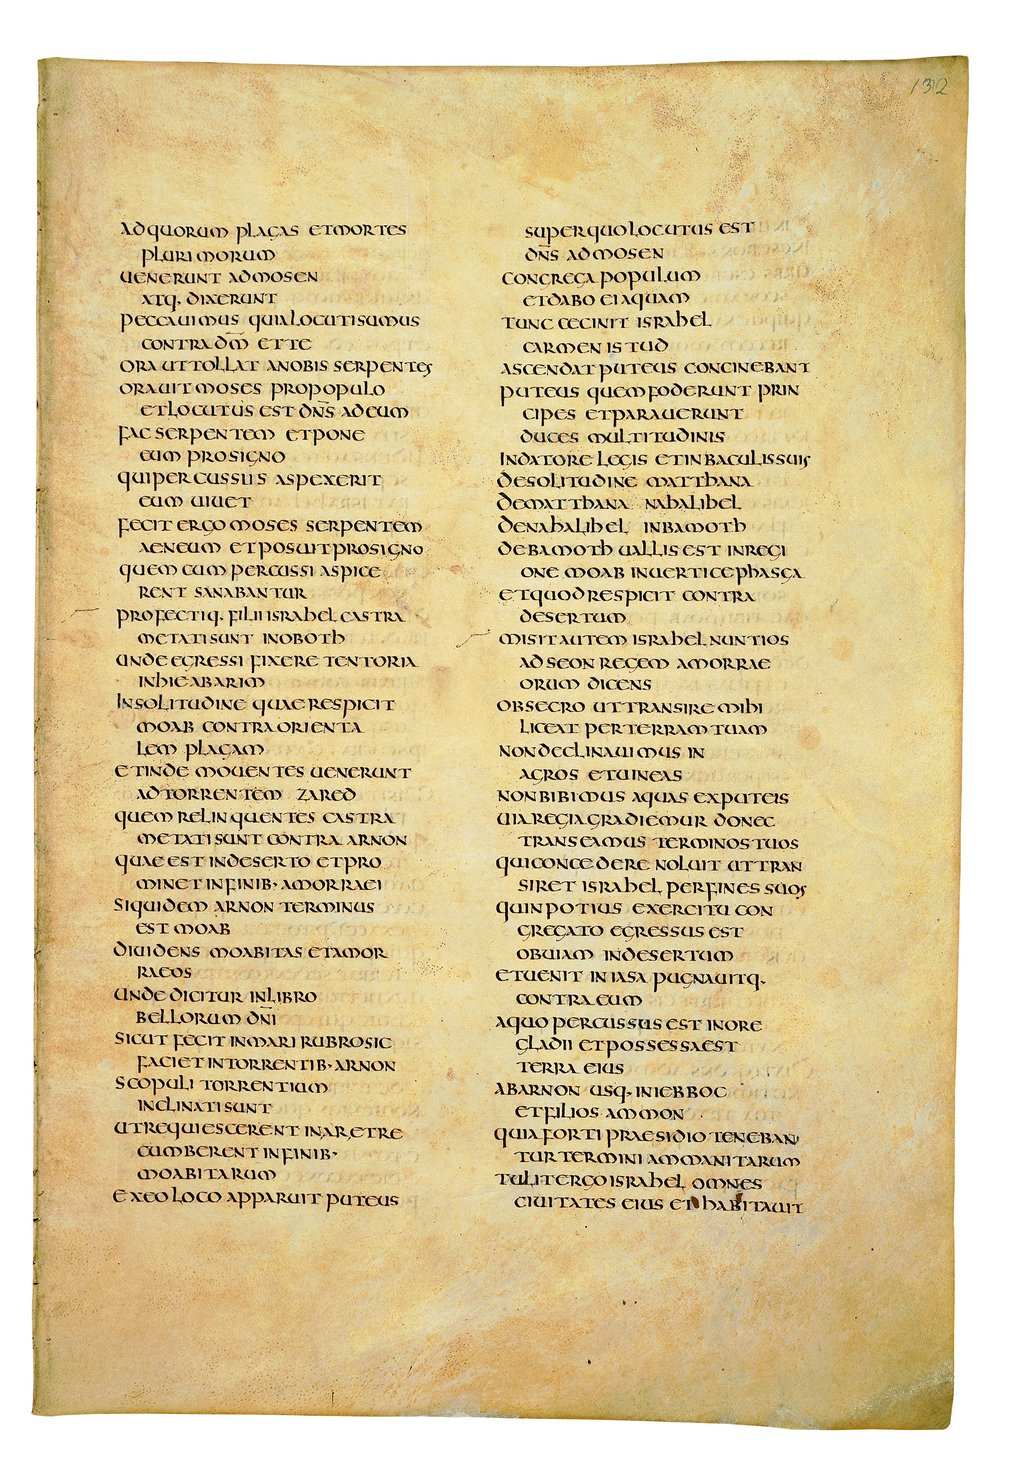 132
AD QUORUM PLAGAS ET MORTES
PLURIMORUM
UENERUNT AD MOSEN
ATQ· DIXERUNT
PECCAUIMUS QUIA LOCUTI SUMUS
CONTRA DM̄ ET TE
ORA UT TOLLAT A NOBIS SERPENTES
ORAUIT MOSES PRO POPULO
ET LOCUTUS EST DN̄S AD EUM
FAC SERPENTEM ET PONE
EUM PRO SIGNO
QUI PERCUSSUS ASPEXERIT
EUM UIUET
FECIT ERGO MOSES SERPENTEM
AENEUM ET POSUIT PRO SIGNO
QUEM CUM PERCUSSI ASPICE
RENT SANABANTUR
PROFECTIQ· FILII ISRAHEL CASTRA
METATI SUNT IN OBOTH
UNDE EGRESSI FIXERE TENTORIA
IN HIEABARIM
IN SOLITUDINE QUAE RESPICIT
MOAB CONTRA ORIENTA
LEM PLAGAM
ET INDE MOUENTES UENERUNT
AD TORRENTEM ZARED
QUEM RELINQUENTES CASTRA
METATI SUNT CONTRA ARNON
QUAE EST IN DESERTO ET PRO
MINET IN FINIB· AMORRAEI
SIQUIDEM ARNON TERMINUS
EST MOAB
DIUIDENS MOABITAS ET AMOR
RAEOS
UNDE DICITUR IN LIBRO
BELLORUM DN̄I
SICUT FECIT IN MARI RUBRO SIC
FACIET IN TORRENTIB· ARNON
SCOPULI TORRENTIUM
INCLINATI SUNT
UT REQUIESCERENT IN AR ET RE
CUMBERENT IN FINIB·
MOABITARUM
EX EO LOCO APPARUIT PUTEUS
SUPER QUO LOCUTUS EST
DN̄S AD MOSEN
CONGREGA POPULUM
ET DABO EI AQUAM
TUNC CECINIT ISRAHEL
CARMEN ISTUD
ASCENDAT PUTEUS CONCINEBANT
PUTEUS QUEM FODERUNT PRIN
CIPES ET PARAUERUNT
DUCES MULTITUDINIS
IN DATORE LEGIS ET IN BACULIS SUIS
DE SOLITUDINE MATTHANA
DE MATTHANA NAHALIHEL
DE NAHALIHEL IN BAMOTH
DE BAMOTH UALLIS EST IN REGI
ONE MOAB IN UERTICE PHASGA
ET QUOD RESPICIT CONTRA
DESERTUM
MISIT AUTEM ISRAHEL NUNTIOS
AD SEON REGEM AMORRAE
ORUM DICENS
OBSECRO UT TRANSIRE MIHI
LICEAT PER TERRAM TUAM
NON DECLINAUIMUS IN
AGROS ET UINEAS
NON BIBIMUS AQUAS EX PUTEIS
UIA REGIA GRADIEMUR DONEC
TRANSEAMUS TERMINOS TUOS
QUI CONCEDERE NOLUIT UT TRAN
SIRET ISRAHEL PER FINES SUOS
QUIN POTIUS EXERCITU CON
GREGATO EGRESSUS EST
OBUIAM IN DESERTUM
ET UENIT IN IASA PUGNAUITQ·
CONTRA EUM
A QUO PERCUSSUS EST IN ORE
GLADII ET POSSESSA EST
TERRA EIUS
AB ARNON USQ· IN IEBBOC
ET FILIOS AMMON
QUIA FORTI PRAESIDIO TENEBAN
TUR TERMINI AMMANITARUM
TULIT ERGO ISRAHEL OMNES
CIUITATES EIUS ET HABITAUIT